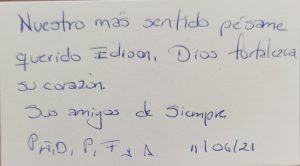 Nuestro más sentido pésame
querido Edison, Dios fortalezca
su corazón.
Sus amigos de Siempre
P, D, P, F y A. 11/06/21